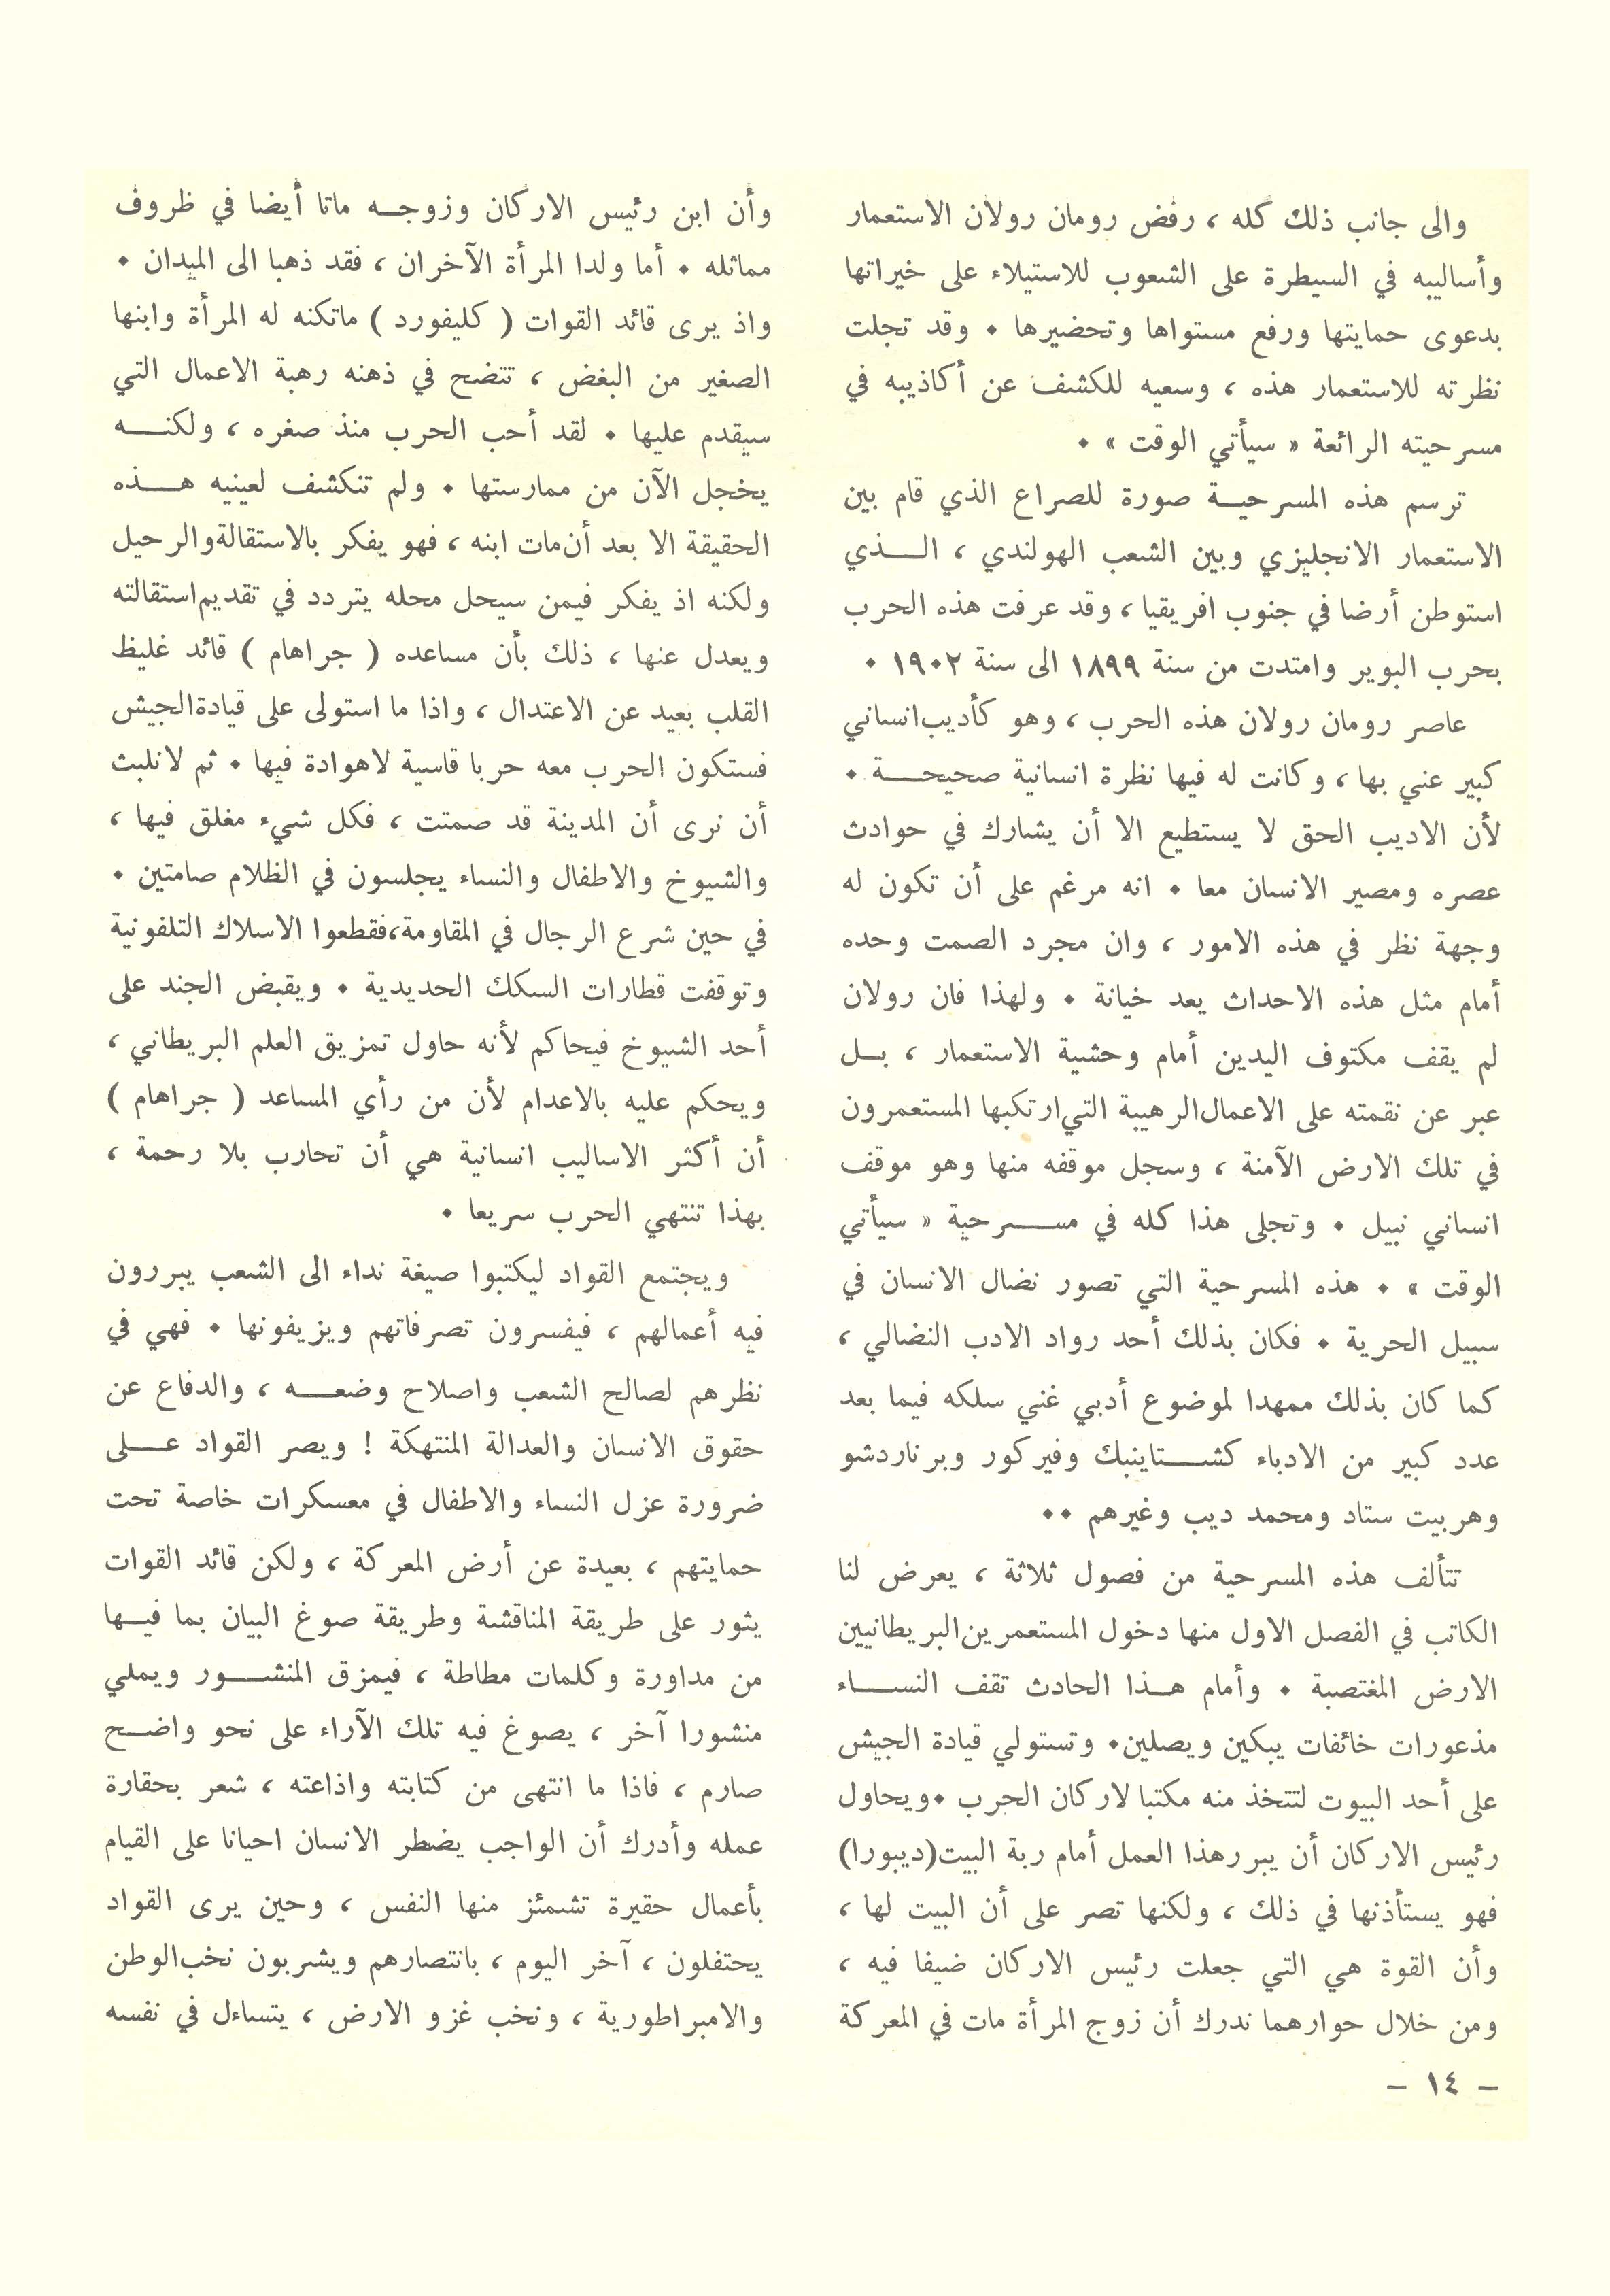 والى جانب ذلك كله ، رفض رومان رولان الاستعمار
وأساليبه في السيطرة على الشعوب للاستيلاء على خيراتها
بدعوى حمايتها ورفع مستواها وتحضيرها ٠ وقد تجلت
نظرته للاستعمار هذه ، وسعيه للكشف عن أكاذيبه في
مسرحيته الرائعة « سيأتي الوقت » ٠
ترسم هذه المسرحية صورة للصراع الذي قام بين
الاستعمار الانجليزي وبين الشعب الهولندي ، الذي
استوطن أرضا في جنوب افريقيا ، وقد عرفت هذه الحرب
بحرب البوير وامتدت من سنة ١٨٩٩ الى سنة ١٩٠٢ ٠
عاصر رومان رولان هذه الحرب ، وهو كأديب انساني
كبير عني بها ، وكانت له فيها نظرة انسانية صحيحة ٠
لأن الاديب الحق لا يستطيع الا أن يشارك في حوادث
عصره ومصير الانسان معا ٠ انه مرغم على أن تكون له
وجهة نظر في هذه الامور ، وان مجرد الصمت وحده
أمام مثل هذه الاحداث يعد خيانة ٠ ولهذا فان رولان
لم يقف مكتوف اليدين أمام وحشية الاستعمار ، بل
عبر عن نقمته على الاعمال الرهيبة التي ارتكبها المستعمرون
في تلك الارض الآمنة ، وسجل موقفه منها وهو موقف
انساني نبيل ٠ وتجلى هذا كله في مسرحية « سيأتي
الوقت » ٠ هذه المسرحية التي تصور نضال الانسان في
سبيل الحرية ٠ فكان بذلك أحد رواد الادب النضالي ،
كما كان بذلك ممهدا لموضوع أدبي غني سلكه فيما بعد
عدد كبير من الادباء كشتاينبك وفيركور وبرناردشو
وهربيت ستاد ومحمد ديب وغيرهم ٠٠
تتألف هذه المسرحية من فصول ثلاثة ، يعرض لنا
الكاتب في الفصل الاول منها دخول المستعمرين البريطانيين
الارض المغتصبة ٠ وأمام هذا الحادث تقف النساء
مذعورات خائفات يبكين ويصلين٠ وتستولي قيادة الجيش
على أحد البيوت لتتخذ منه مكتبا لاركان الحرب ٠ويحاول
رئيس الاركان أن يبرر هذا العمل أمام ربة البيت(ديبورا)
فهو يستأذنها في ذلك ، ولكنها تصر على أن البيت لها ،
وأن القوة هي التي جعلت رئيس الاركان ضيفا فيه ،
ومن خلال حوارهما ندرك أن زوج المرأة مات في المعركة
وأن ابن رئيس الاركان وزوجه ماتا أيضا في ظروف
مماثله ٠ أما ولدا المرأة الآخران ، فقد ذهبا الى الميدان ٠
واذ يرى قائد القوات ( كليفورد ) ماتكنه له المرأة وابنها
الصغير من البغض ، تتضح في ذهنه رهبة الاعمال التي
سيقدم عليها ٠ لقد أحب الحرب منذ صغره ، ولكنه
يخجل الآن من ممارستها ٠ ولم تنكشف لعينيه هذه
الحقيقة الا بعد أن مات ابنه ، فهو يفكر بالاستقالة والرحيل
ولكنه اذ يفكر فيمن سيحل محله يتردد في تقديم استقالته
ويعدل عنها ، ذلك بأن مساعده ( جراهام ) قائد غليظ
القلب بعيد عن الاعتدال ، واذا ما استولى على قيادة الجيش
فستكون الحرب معه حربا قاسية لاهوادة فيها ٠ ثم لانلبث
أن نرى أن المدينة قد صمتت ، فكل شيء مغلق فيها ،
والشيوخ والاطفال والنساء يجلسون في الظلام صامتين ٠
في حين شرع الرجال في المقاومة،فقطعوا الاسلاك التلفونية
وتوقفت قطارات السكك الحديدية ٠ ويقبض الجند على
أحد الشيوخ فيحاكم لأنه حاول تمزيق العلم البريطاني ،
ويحكم عليه بالاعدام لأن من رأي المساعد ( جراهام )
أن أكثر الاساليب انسانية هي أن تحارب بلا رحمة ،
بهذا تنتهي الحرب سريعا ٠
ويجتمع القواد ليكتبوا صيغة نداء الى الشعب يبررون
فيه أعمالهم ، فيفسرون تصرفاتهم ويزيفونها ٠ فهي في
نظرهم لصالح الشعب واصلاح وضعه ، والدفاع عن
حقوق الانسان والعدالة المنتهكة ! ويصر القواد على
ضرورة عزل النساء والاطفال في معسكرات خاصة تحت
حمايتهم ، بعيدة عن أرض المعركة ، ولكن قائد القوات
يثور على طريقة المناقشة وطريقة صوغ البيان بما فيها
من مداورة وكلمات مطاطة ، فيمزق المنشور ويملي
منشورا آخر ، يصوغ فيه تلك الآراء على نحو واضح
صارم ، فاذا ما انتهى من كتابته واذاعته ، شعر بحقارة
عمله وأدرك أن الواجب يضطر الانسان احيانا على القيام
بأعمال حقيرة تشمئز منها النفس ، وحين يرى القواد
يحتفلون ، آخر اليوم ، بانتصارهم ويشربون نخب الوطن
والامبراطورية ، ونخب غزو الارض ، يتساءل في نفسه
– ١٤ –